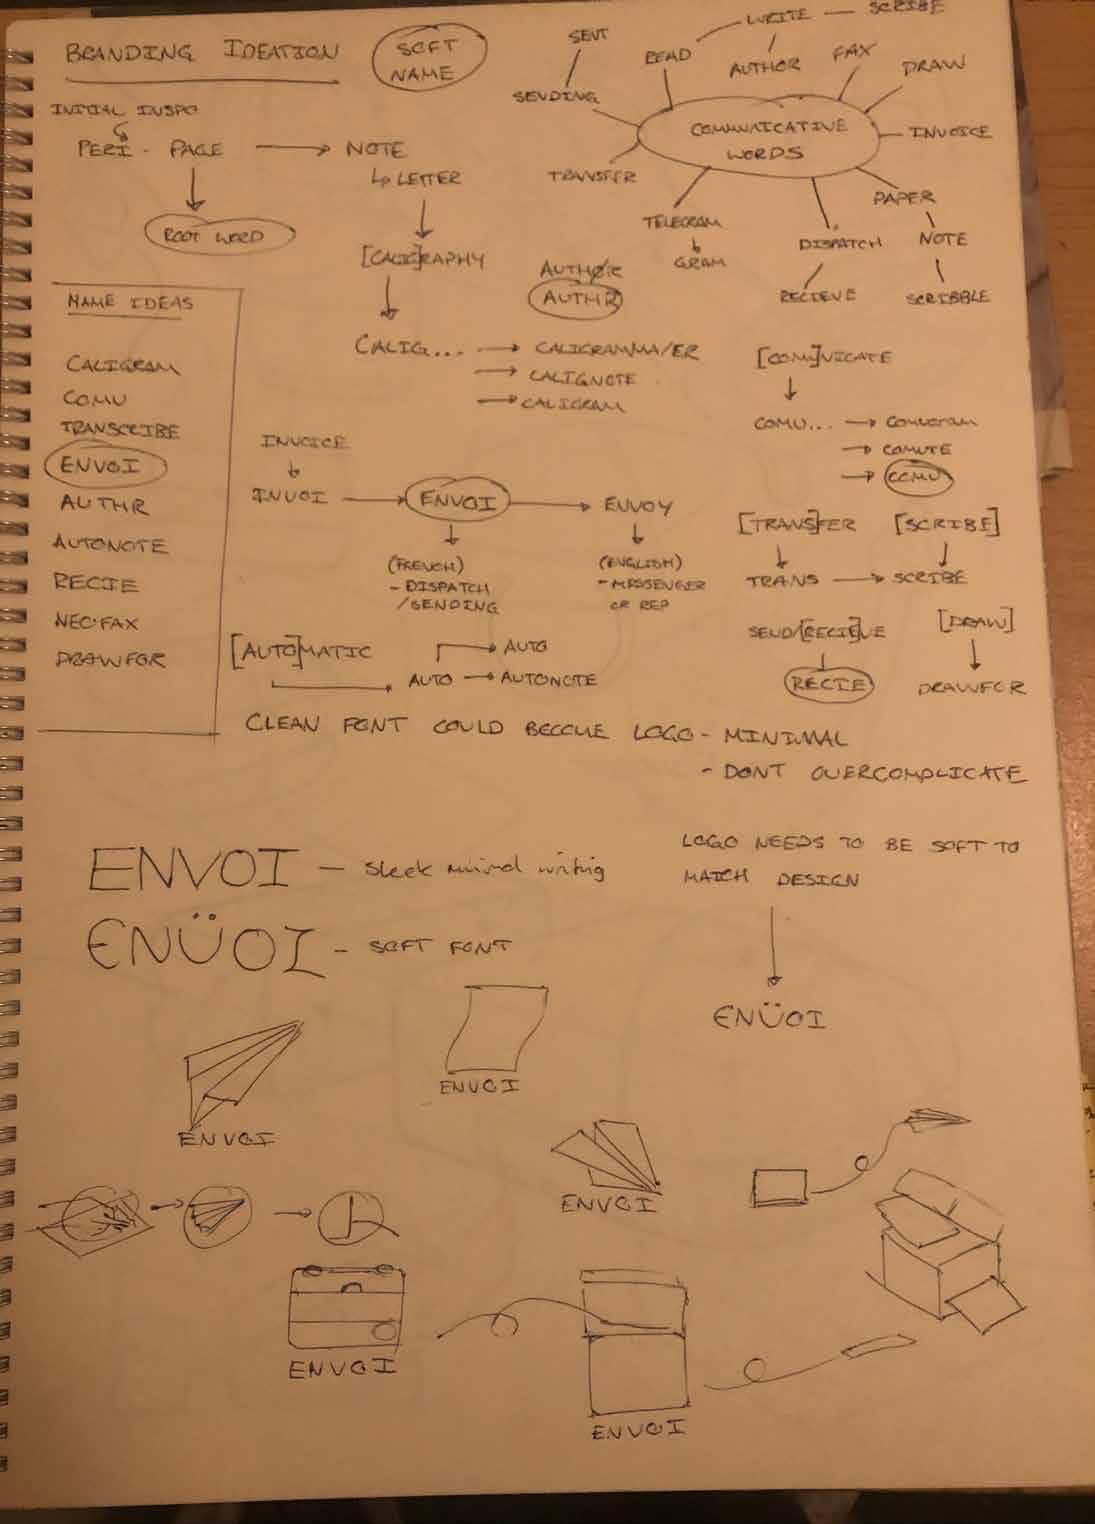 BRANDING IDEATION
SOFT
NAME
INITIAL INSPO
PERI - PAGE → NOTE
↳ LETTER
ROOT WORD
[CALIG]RAPHY
CALIG... → CALIGRAMMA/ER
→ CALIGNOTE
→ CALIGRAM
AUTHOR
AUTHR
SENT
SENDING
READ
WRITE — SCRIBE
AUTHOR
FAX
DRAW
INVOICE
COMMUNICATIVE
WORDS
TRANSFER
TELEGRAM
GRAM
DISPATCH
RECIEVE
PAPER
NOTE
SCRIBBLE
NAME IDEAS
CALIGRAM
COMU
TRANSCRIBE
ENVOI
AUTHR
AUTONOTE
RECIE
NEO·FAX
DRAWFOR
INVOICE
INVOI → ENVOI → ENVOY
(FRENCH)
- DISPATCH
/SENDING
(ENGLISH)
- MESSENGER
OR REP
[COMU]NICATE
COMU... → COMUGRAM
→ COMUTE
→ COMU
[TRANS]FER [SCRIBE]
TRANS → SCRIBE
SEND/[RECIE]VE
RECIE
[DRAW]
DRAWFOR
[AUTO]MATIC
→ AUTO
AUTO → AUTONOTE
CLEAN FONT COULD BECOME LOGO - MINIMAL
- DONT OVERCOMPLICATE
ENVOI - Sleek writing
ENÜOI - SOFT FONT
LOGO NEEDS TO BE SOFT TO
MATCH DESIGN
ENÜOI
ENVOI
ENVOI
ENVOI
ENVOI
ENVOI